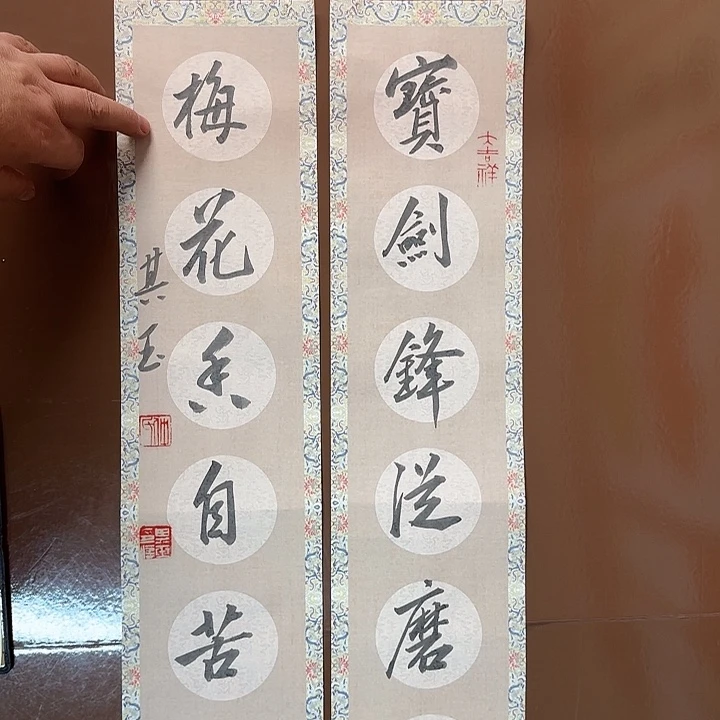 寶劍鋒從磨
大吉祥
梅花香自苦
其玉